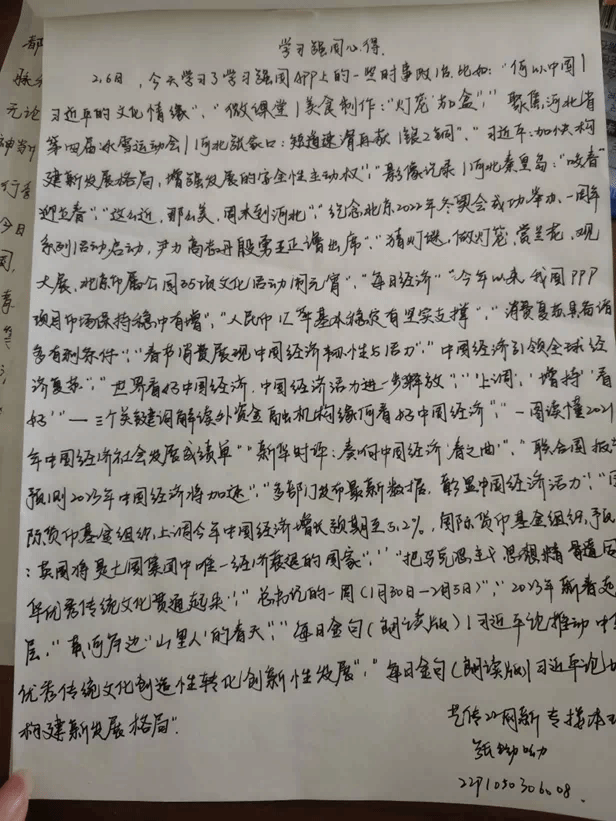 学习强国心得.
2.6日，今天学习了学习强国APP上的一些时事政治.比如："何以中国|
习近平的文化情缘"."微课堂|美食制作："灯笼"如盒"，"聚焦河北省
第四届冰雪运动会|河北张家口：短道速滑再获1银2铜"."习近平：加快构
建新发展格局，增强发展的安全性主动权"，"影像记录|河北秦皇岛："咬春"
迎立春"，"这么近，那么美，周末到河北"，"纪念北京2022年冬奥会成功举办一周年
系列活动启动，尹力高志丹殷勇王正谱出席"，"猜灯谜，做灯笼，赏兰花，观
大展，北京市属公园35项文化活动闹元宵"，"每日经济""今年以来我国PPP
项目市场保持稳中有增"，"人民币汇率基本稳定有坚实支撑"，"消费复苏具备诸
多有利条件"，"春节消费展现中国经济韧性与活力"，"中国经济引领全球经
济复苏"，"世界看好中国经济.中国经济活力进一步释放"，"'上调''增持''看
好'"——三个关键词解读外资金融机构缘何看好中国经济"，"一图读懂2021
年中国经济社会发展成绩单""新华时评：奏响中国经济'春之曲'"，"联合国报告
预测2023年中国经济将加速"，"多部门发布最新数据，彰显中国经济活力"，"国
际货币基金组织上调今年中国经济增长预期至5.2%，国际货币基金组织予以
：英国将是七国集团中唯一经济衰退的国家"，"把马克思主义思想精髓同
华优秀传统文化贯通起来"，"总书记的一周(1月30日—2月5日)"，"2023年新春走
层."黄河岸边'山里人'的春天"，"每日金句(朗读版)|习近平论推动中
优秀传统文化创造性转化创新性发展"，"每日金句(朗读版)|习近平论加
构建新发展格局".
艺传22网新专接本
229105030608.